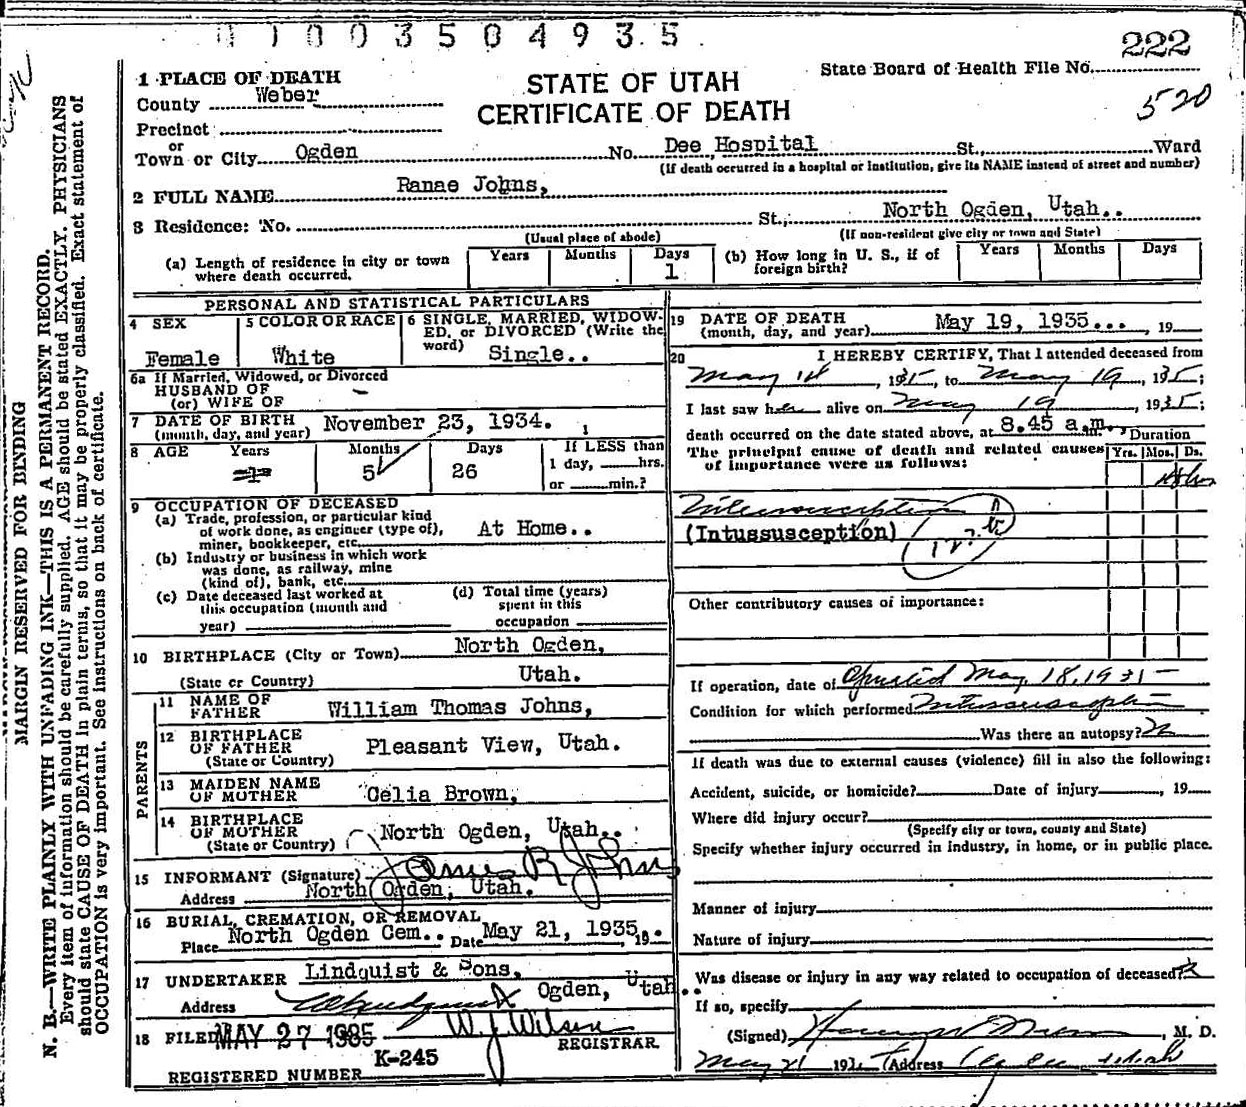 0 1 0 0 3 5 0 4 9 3 5
222
520
State Board of Health File No.
STATE OF UTAH
CERTIFICATE OF DEATH
1 PLACE OF DEATH
County Weber
Precinct
or
Town or City Ogden No. Dee Hospital St., Ward
(If death occurred in a hospital or institution, give its NAME instead of street and number)
2 FULL NAME Ranae Johns,
3 Residence: No. St., North Ogden, Utah..
(Usual place of abode) (If non-resident give city or town and State)
(a) Length of residence in city or town where death occurred. Years Months Days 1
(b) How long in U. S., if of foreign birth? Years Months Days
PERSONAL AND STATISTICAL PARTICULARS
4 SEX Female
5 COLOR OR RACE White
6 SINGLE, MARRIED, WIDOWED, or DIVORCED (Write the word) Single..
6a If Married, Widowed, or Divorced
HUSBAND OF
(or) WIFE OF –
7 DATE OF BIRTH November 23, 1934.
(month, day, and year)
8 AGE Years Months Days If LESS than
5 26 1 day, hrs.
or min.?
9 OCCUPATION OF DECEASED
(a) Trade, profession, or particular kind of work done, as engineer (type of), miner, bookkeeper, etc. At Home..
(b) Industry or business in which work was done, as railway, mine (kind of), bank, etc.
(c) Date deceased last worked at this occupation (month and year)
(d) Total time (years) spent in this occupation
10 BIRTHPLACE (City or Town) North Ogden,
(State or Country) Utah.
PARENTS
11 NAME OF FATHER William Thomas Johns,
12 BIRTHPLACE OF FATHER Pleasant View, Utah.
(State or Country)
13 MAIDEN NAME OF MOTHER Celia Brown,
14 BIRTHPLACE OF MOTHER North Ogden, Utah..
(State or Country)
15 INFORMANT (Signature) James R Johns
Address North Ogden, Utah.
16 BURIAL, CREMATION, OR REMOVAL
Place North Ogden Cem.. Date May 21, 1935, 19
17 UNDERTAKER Lindquist & Sons,
Address Ogden, Utah..
18 FILED MAY 27 1935 W. J. Wilson
REGISTRAR
K-245
REGISTERED NUMBER
19 DATE OF DEATH May 19, 1935..., 19
(month, day, and year)
20 I HEREBY CERTIFY, That I attended deceased from
May 1935, to May 19, 1935;
I last saw her alive on May 19, 1935;
death occurred on the date stated above, at 8.45 a.m.,
The principal cause of death and related causes of importance were as follows:
Duration
Yrs. Mos. Ds.
Intussusception
(Intussusception)
Other contributory causes of importance:
If operation, date of Operated May 18, 1935
Condition for which performed Intussusception
Was there an autopsy? no
If death was due to external causes (violence) fill in also the following:
Accident, suicide, or homicide? Date of injury , 19
Where did injury occur?
(Specify city or town, county and State)
Specify whether injury occurred in industry, in home, or in public place.
Manner of injury
Nature of injury
Was disease or injury in any way related to occupation of deceased?
If so, specify
(Signed) , M. D.
May 21 193 Address Ogden Utah
MARGIN RESERVED FOR BINDING
N. B.—WRITE PLAINLY WITH UNFADING INK—THIS IS A PERMANENT RECORD.
Every item of information should be carefully supplied. AGE should be stated EXACTLY. PHYSICIANS
should state CAUSE OF DEATH in plain terms, so that it may be properly classified. Exact statement of
OCCUPATION is very important. See instructions on back of certificate.